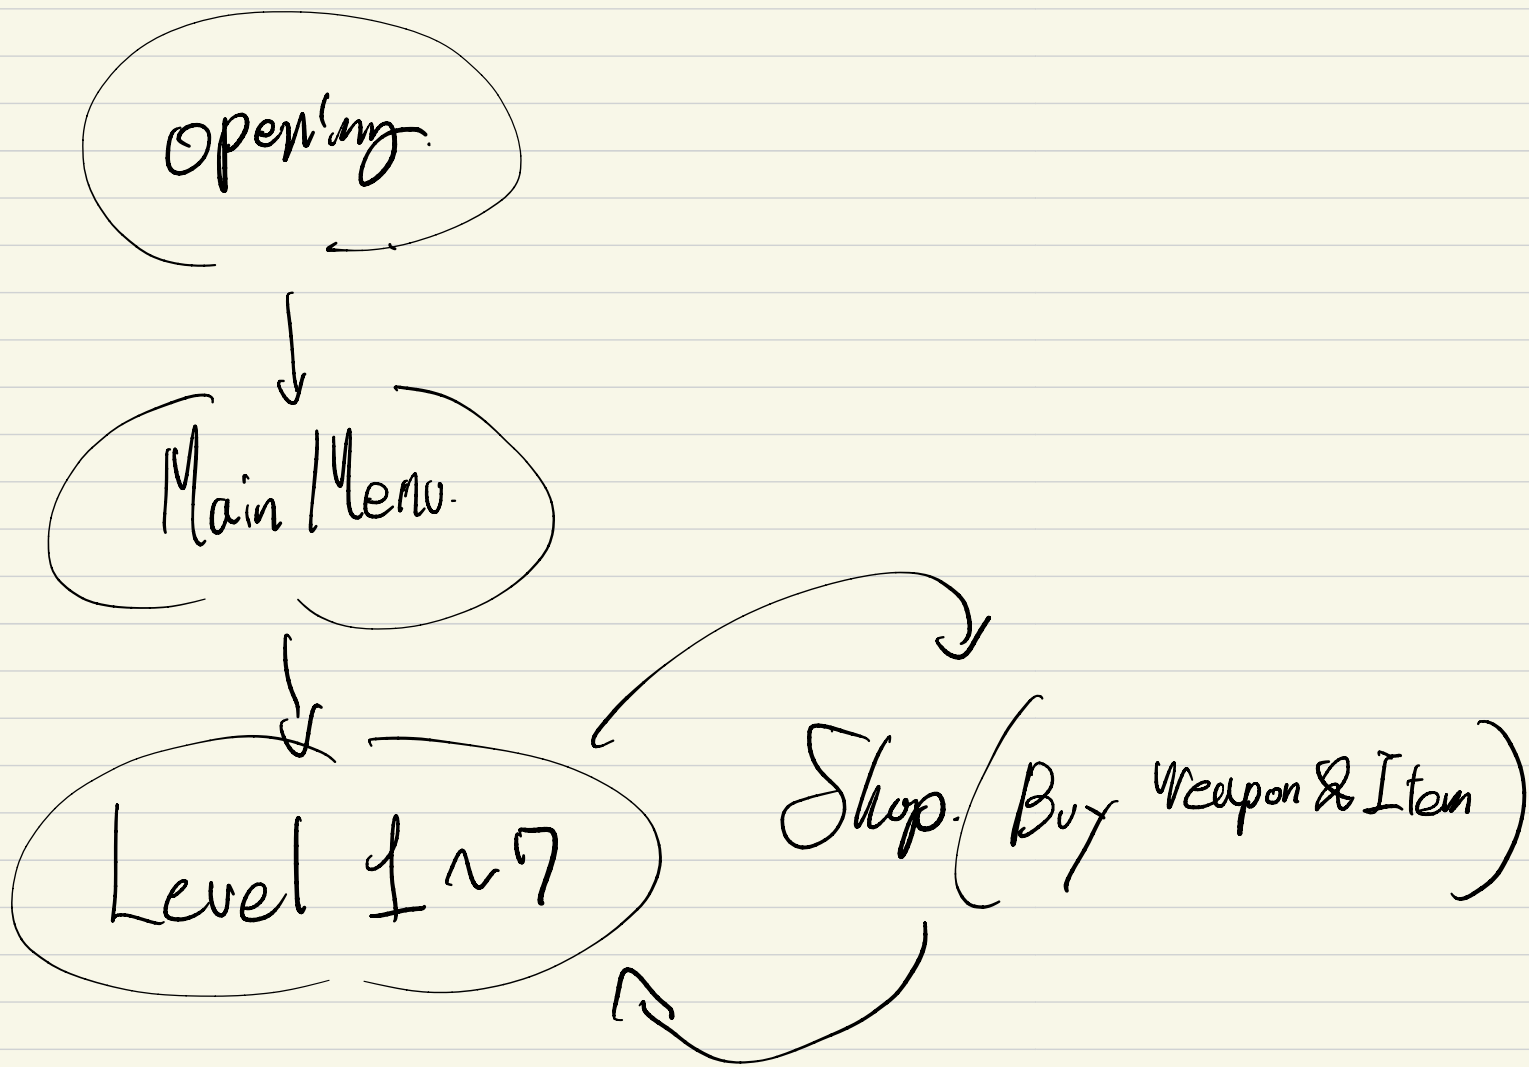 opening.
Main Menu.
Level 1 ~ 7
Shop. (Buy Weapon & Item)